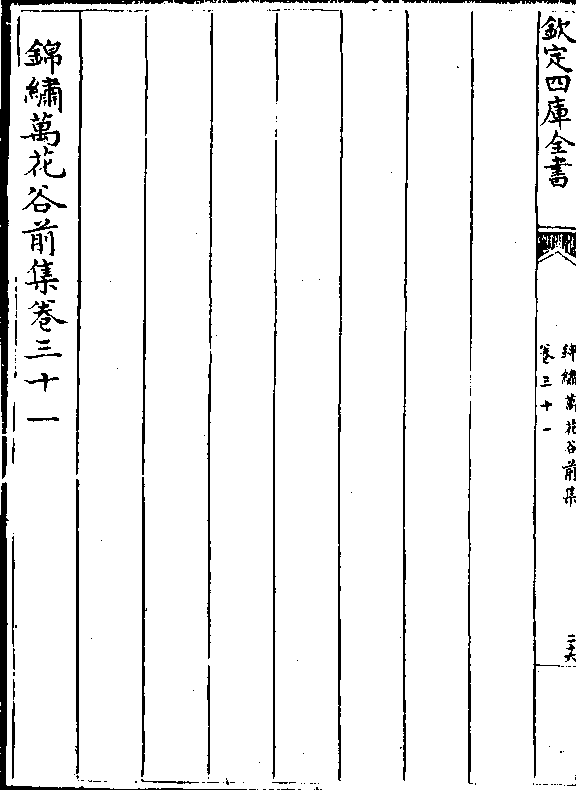 欽定四庫全書
錦繡萬花谷前集
卷三十一
二十六
錦繡萬花谷前集卷三十一